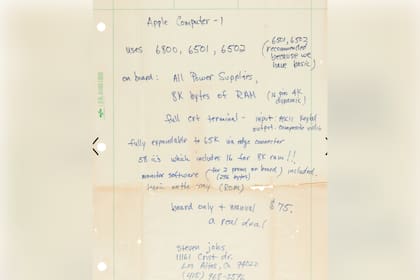 Apple Computer-1
uses 6800, 6501, 6502
(6501, 6502
recommended
because we
have basic)
on board: All Power Supplies,
8K bytes of RAM (16 pin 4K
dynamic)
full crt terminal - input: ASCII Keybd
output: composite video
fully expandable to 65K via edge connector
58 ic's which includes 16 for 8K ram!!
monitor software (for 2 proms on board) included.
(256 bytes)
(ROM)
board only + manual $75.
a real deal
steven jobs
11161 Crist dr.
Los Altos, Ca 94022
(415) 968-3596